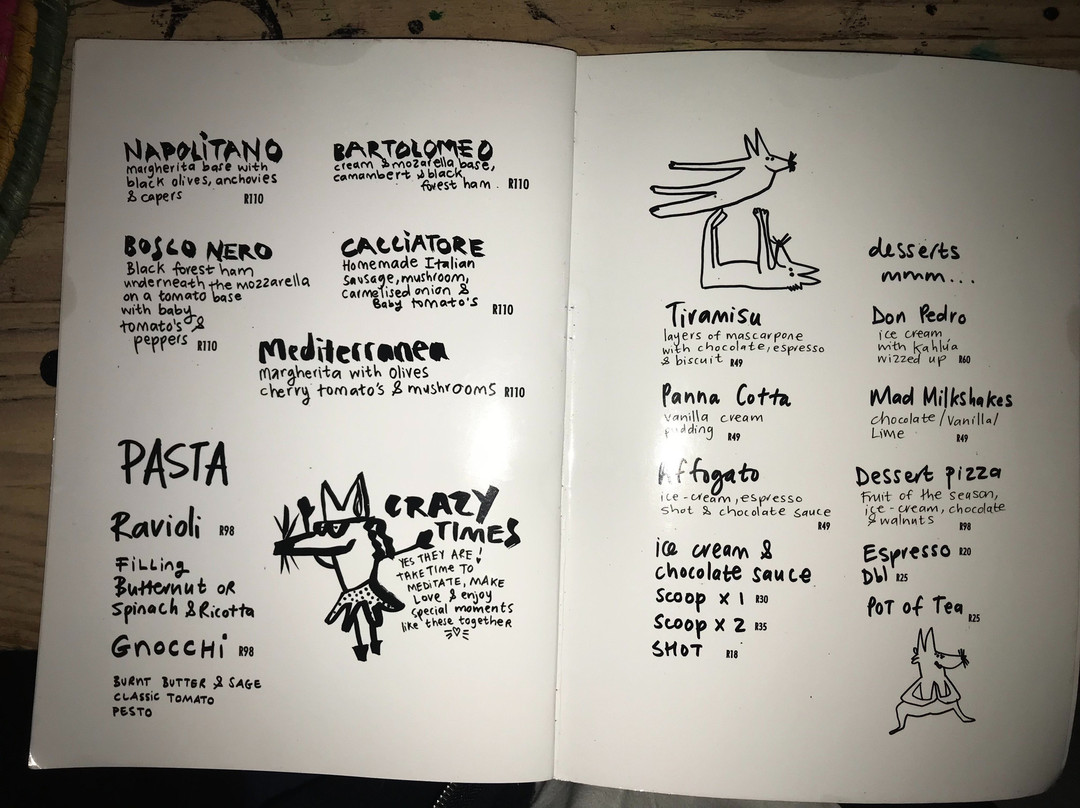 NAPOLITANO
margherita base with
black olives, anchovies
& capers R110
BARTOLOMEO
cream & mozarella base,
camambert & black
forest ham. R110
BOSCO NERO
Black forest ham
underneath the mozzarella
on a tomato base
with baby
tomato's &
peppers R110
CACCIATORE
Homemade Italian
Sausage, mushroom,
Carmelised onion &
Baby tomato's R110
Mediterranea
margherita with olives
cherry tomato's & mushrooms R110
PASTA
Ravioli R98
Filling
Butternut OR
Spinach & Ricotta
Gnocchi R98
BURNT BUTTER & SAGE
CLASSIC TOMATO
PESTO
CRAZY
TIMES
YES THEY ARE!
TAKE TIME TO
MEDITATE, MAKE
Love & enjoy
special moments
like these together
desserts
mmm...
Tiramisu
layers of mascarpone
with chocolate, espresso
& biscuit R49
Panna Cotta
vanilla cream
pudding R49
Affogato
ice-cream, espresso
shot & chocolate sauce
R49
ice cream &
chocolate sauce
Scoop x 1 R30
Scoop x 2 R35
SHOT R18
Don Pedro
ice cream
with kahlúa
wizzed up R60
Mad Milkshakes
chocolate/vanilla/
Lime R49
Dessert pizza
Fruit of the season,
ice-cream, chocolate
& walnuts R98
Espresso R20
Dbl R25
Pot of Tea R25